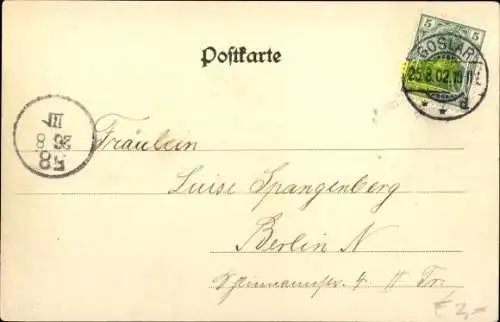 Postkarte
5 5
GOSLAR
25.8.02.
III
26 8
58
Fräulein
Luise Spangenberg
Berlin N
4 II Tr.
€ 2,-